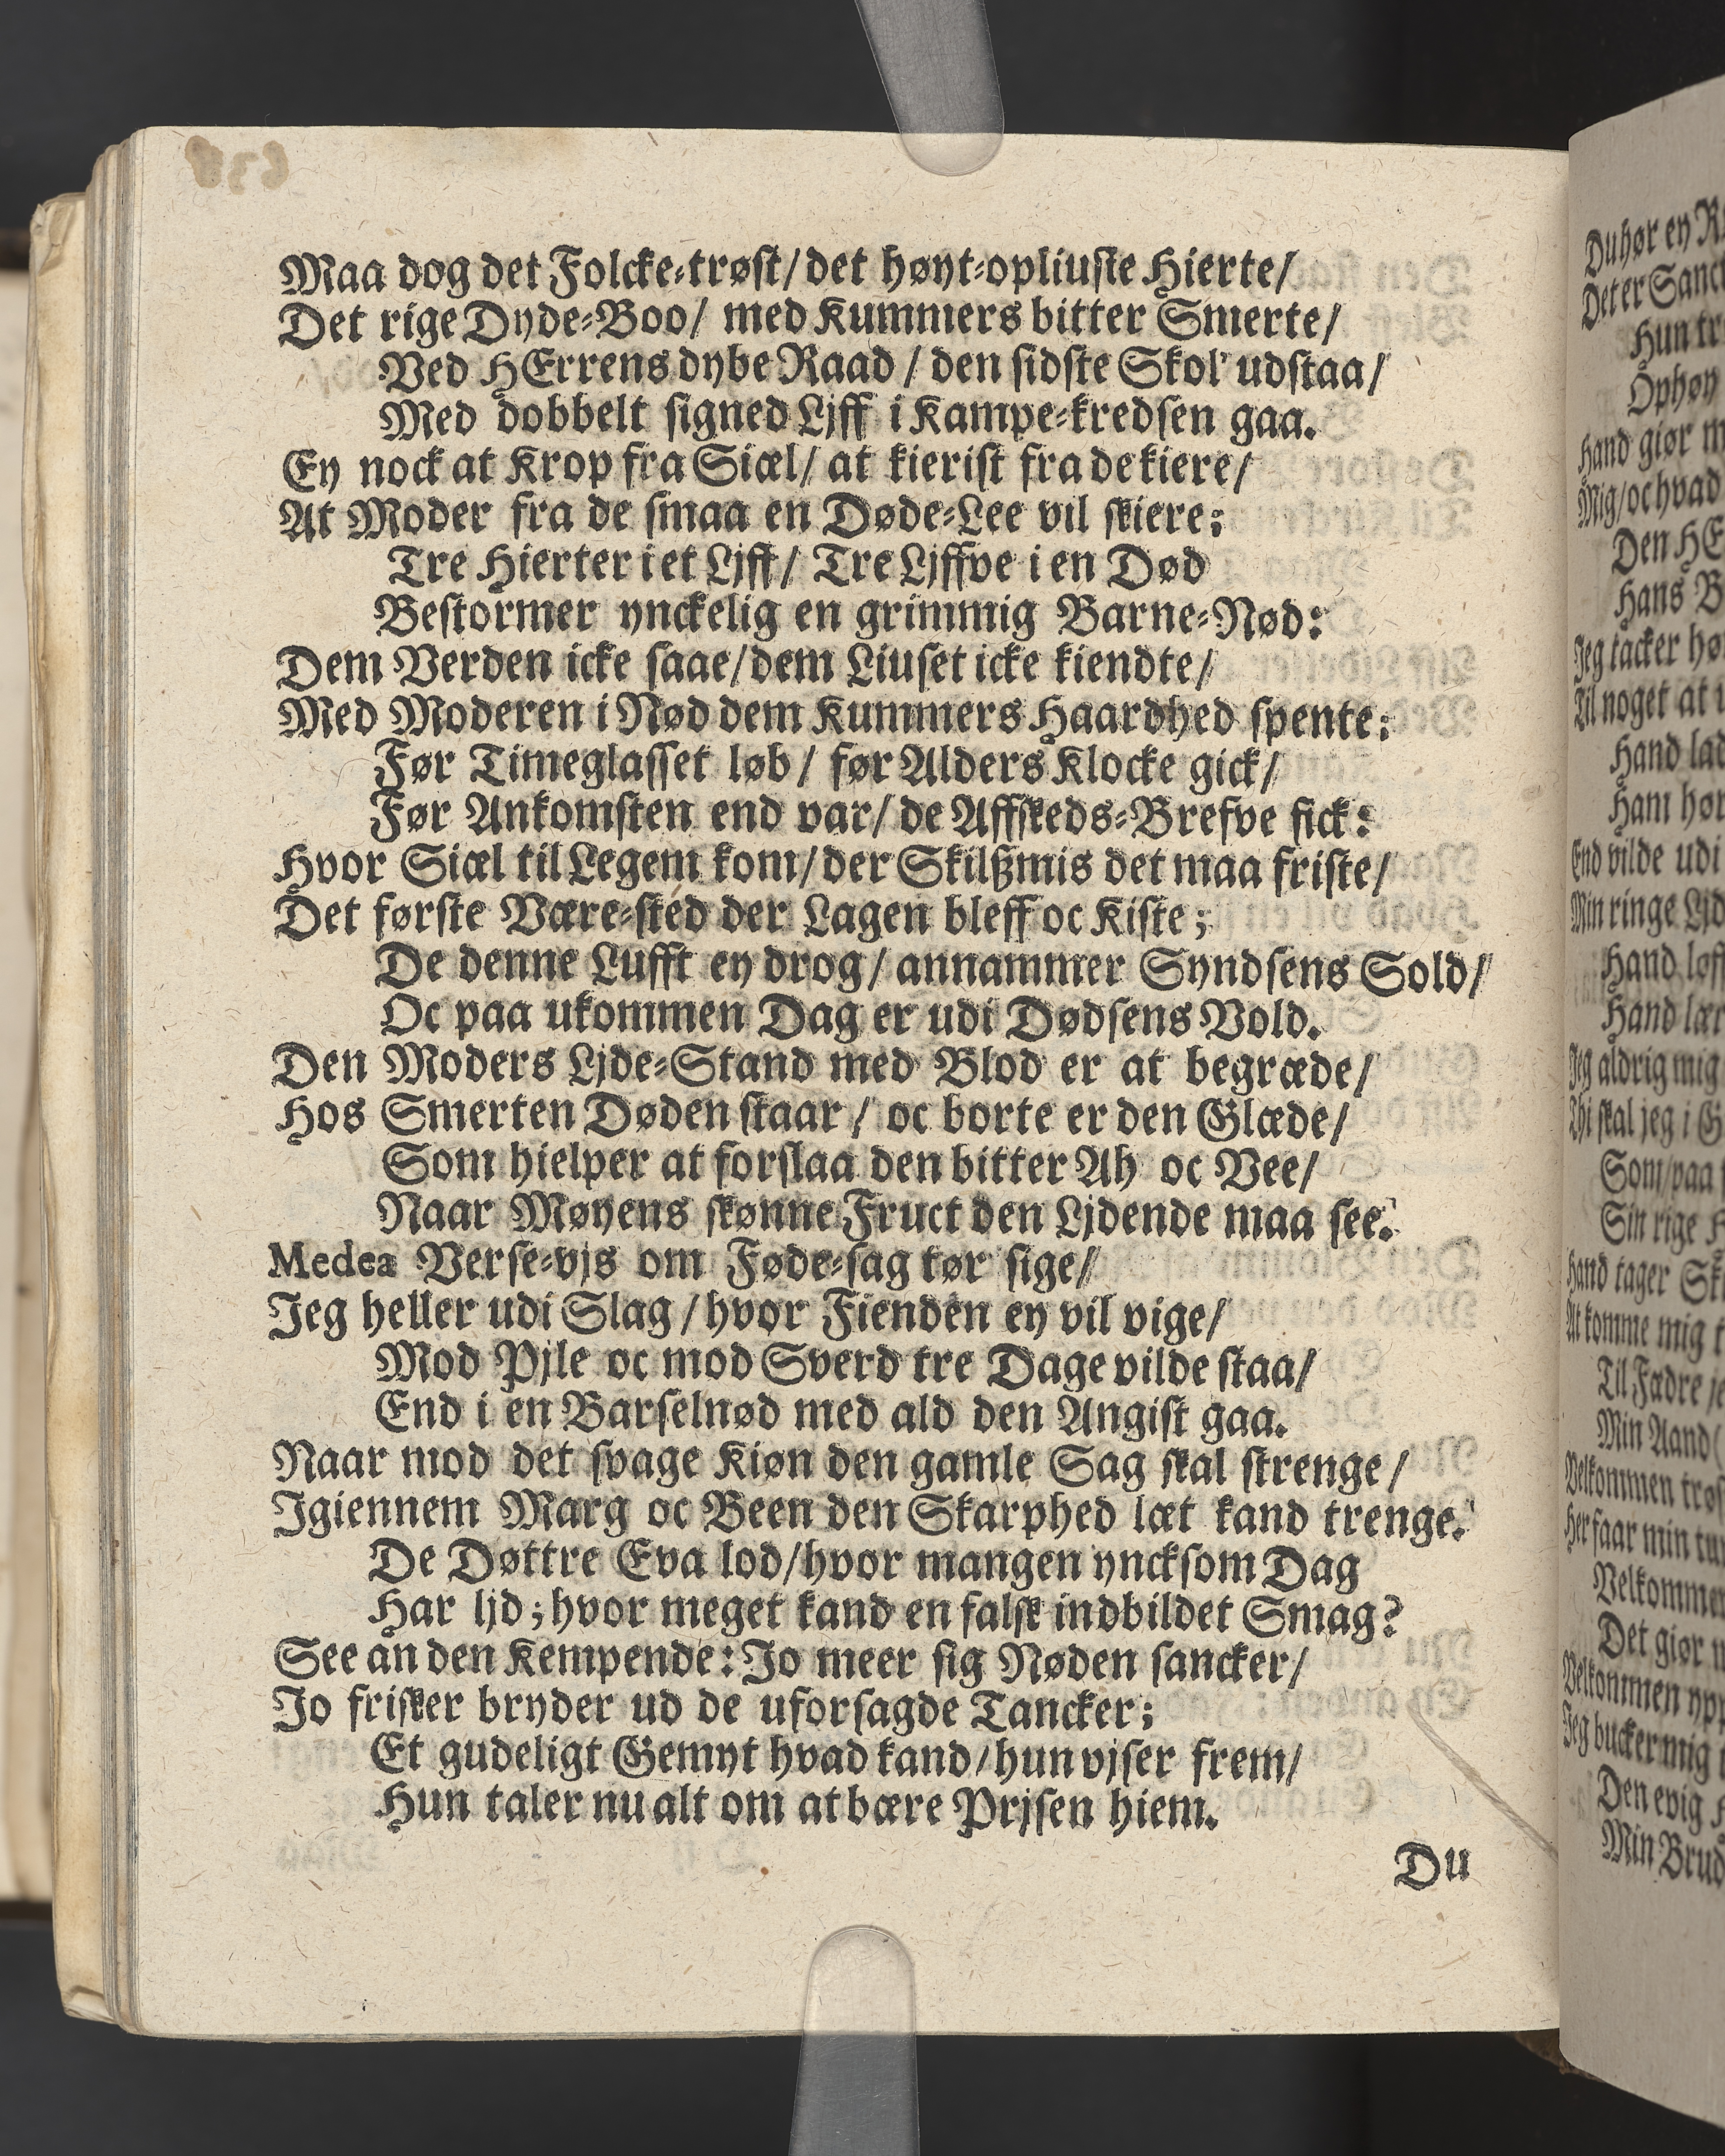 Maa dog det Folcke-trøst/ det høyt-opliuste Hierte/
Det rige Dyde-Boo/ med Kummers bitter Smerte/
Ved HErrens dybe Raad / den sidste Skol' udstaa/
Med dobbelt signed Ljff i Kampe-kredsen gaa.
Ey nock at Krop fra Siæl/ at kierist fra de kiere/
At Moder fra de smaa en Døde-Lee vil skiere;
Tre Hierter i et Ljff/ Tre Ljffve i en Død
Bestormer ynckelig en grimmig Barne-Nød:
Dem Verden icke saae/ dem Liuset icke kiendte/
Med Moderen i Nød dem Kummers Haardhed spente:
Før Timeglasset løb / før Alders Klocke gick/
Før Ankomsten end var/ de Affskeds-Brefve fick:
Hvor Siæl til Legem kom/ der Skilßmis det maa friste/
Det første Være-sted der Lagen bleff oc Kiste;
De denne Lufft ey drog/ annammer Syndsens Sold/
Oc paa ukommen Dag er udi Dødsens Vold.
Den Moders Ljde-Stand med Blod er at begræde/
Hos Smerten Døden staar / oc borte er den Glæde/
Som hielper at forslaa den bitter Ah oc Vee/
Naar Møyens skønne Fruct den Ljdende maa see.
Medea Verse-vjs om Føde-sag tør sige/
Jeg heller udi Slag / hvor Fienden ey vil vige/
Mod Pjle oc mod Sverd tre Dage vilde staa/
End i en Barselnød med ald den Angist gaa.
Naar mod det svage Kiøn den gamle Sag skal strenge/
Igiennem Marg oc Been den Skarphed læt kand trenge.
De Døttre Eva lod/ hvor mangen yncksom Dag
Har ljd; hvor meget kand en falsk indbildet Smag?
See an den Kempende: Jo meer sig Nøden sancker/
Jo frisker bryder ud de uforsagde Tancker;
Et gudeligt Gemyt hvad kand/ hun vjser frem/
Hun taler nu alt om at bære Prjsen hiem.
Du